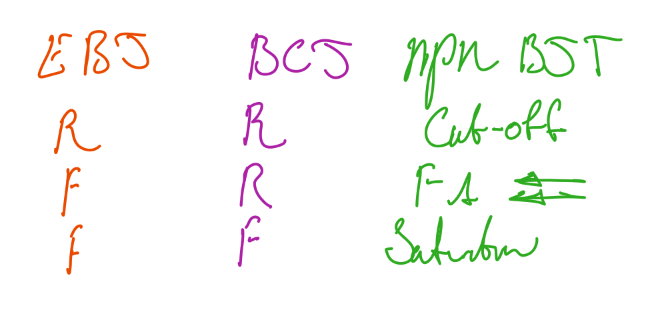 EBJ BCJ npn BJT
R R Cut-off
F R F-A
F F Saturation